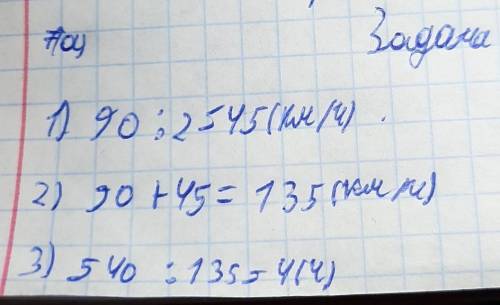 Задача
1) 90 : 2 = 45 (км/ч) .
2) 90 + 45 = 135 (км/ч)
3) 540 : 135 = 4 (ч)